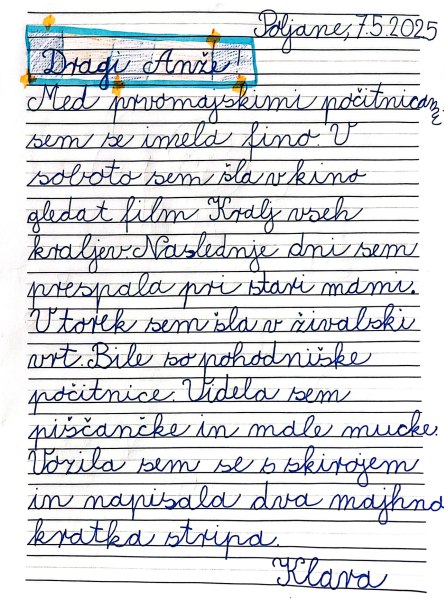 Poljane, 7.5.2025
Dragi Anže!
Med prvomajskimi počitnicami
sem se imela fino. V
soboto sem šla v kino
gledat film Kralj vseh
kraljev. Naslednje dni sem
prespala pri stari mami.
V torek sem šla v živalski
vrt. Bile so pohodniške
počitnice. Videla sem
piščančke in male mucke.
Vozila sem se s skirojem
in napisala dva majhna
kratka stripa.
Klara